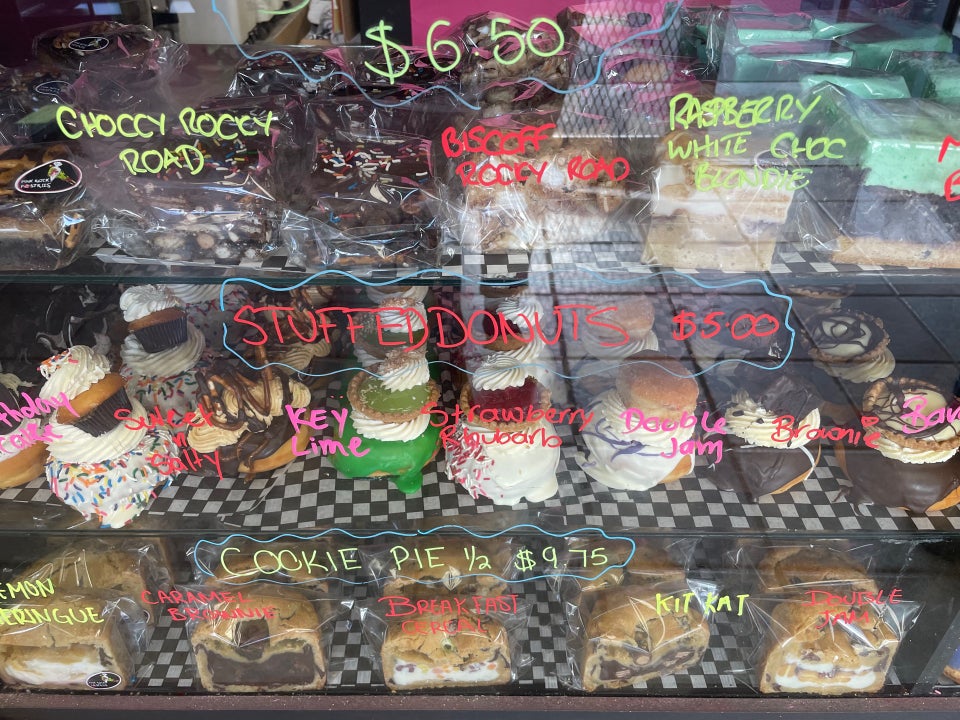 $6.50
CHOCCY ROCCY
ROAD
BISCOFF
ROCCY ROAD
RASPBERRY
WHITE CHOC
BLONDIE
STUFFED DONUTS $5.00
Sweet
n
Salty
KEY
Lime
Strawberry
Rhubarb
Double
Jam
Brownie
COOKIE PIE 1/2 $9.75
EMON
ERINGUE
CARAMEL
BROWNIE
BREAKFAST
CEREAL
KIT KAT
DOUBLE
JAM